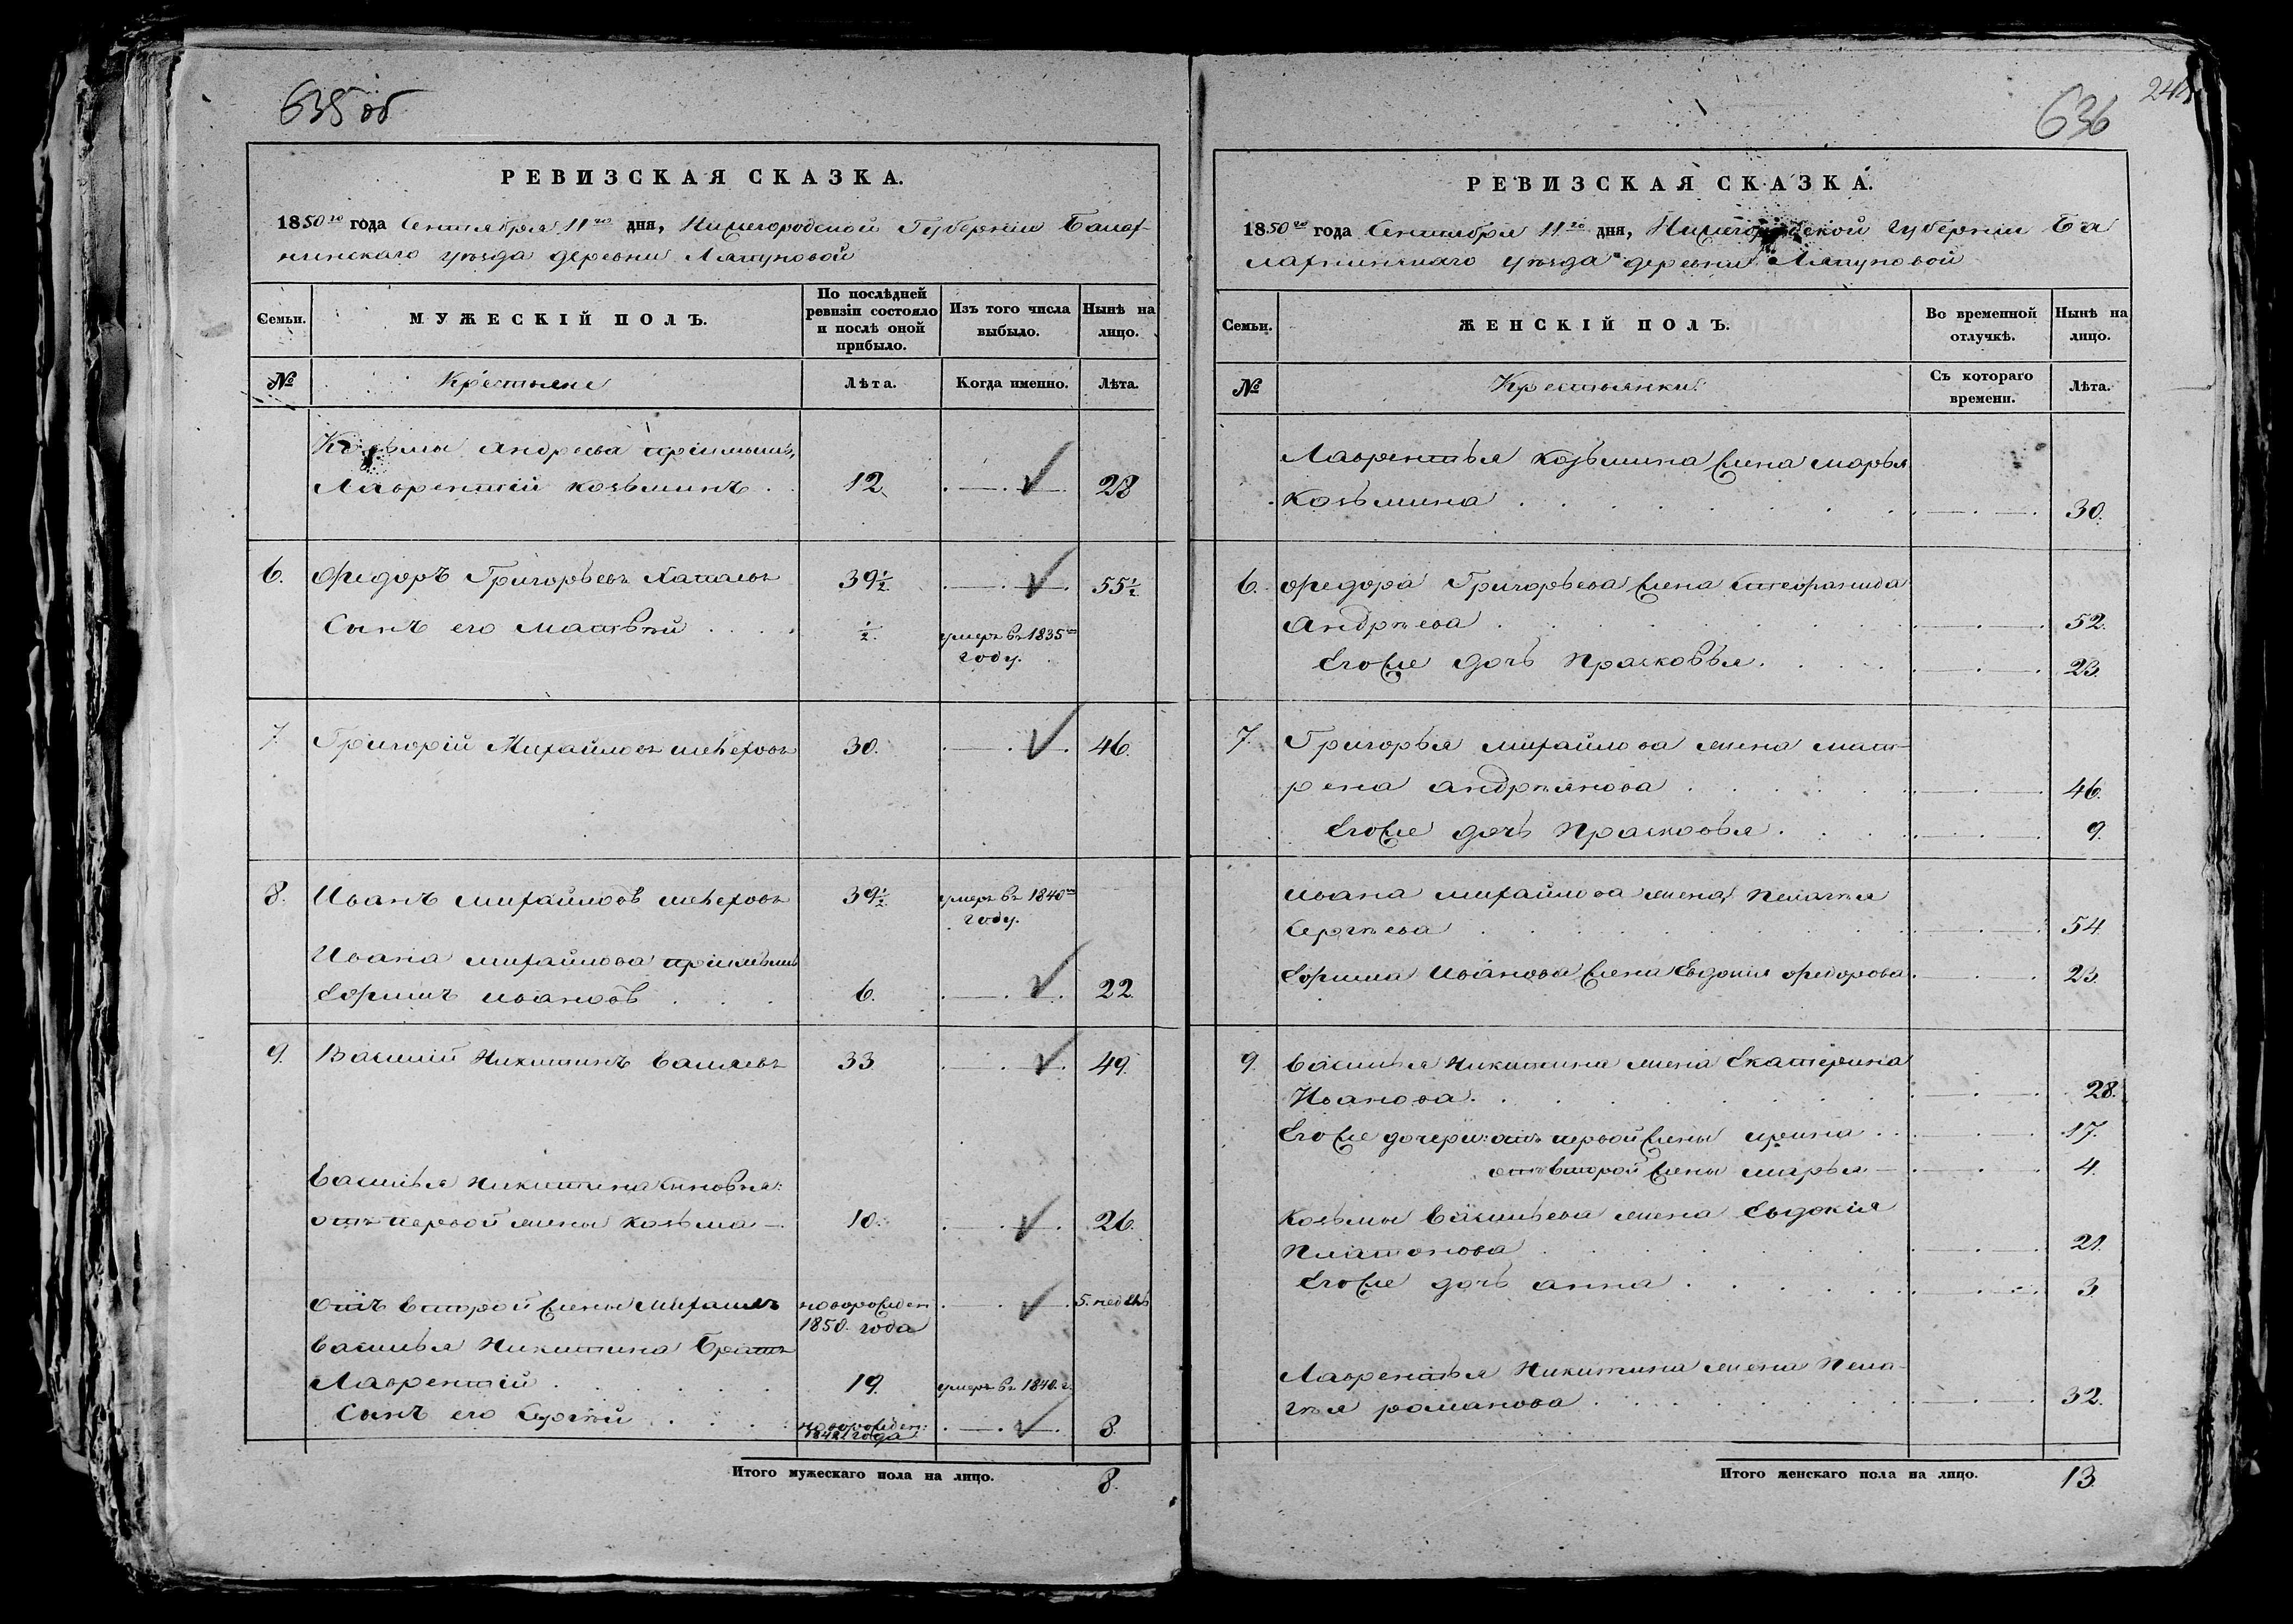 635 об
РЕВИЗСКАЯ СКАЗКА.
1850го года Сентября 11го дня, Нижегородской Губернiи Балах-
нинскаго уѣзда деревни Ляпуновой
Семьи.
МУЖЕСКIЙ ПОЛЪ.
По послѣдней ревизiи состояло и послѣ оной прибыло.
Изъ того числа выбыло.
Нынѣ на лицо.
№
Крестьяне
Лѣта.
Когда именно.
Лѣта.
Козьмы Андреева прiимышъ,
Лаврентiй Козьминъ . 12. 28
6. Федоръ Григорьевъ 39½ 55½
Сынъ его Матвѣй ½. умеръ въ 1835м
году.
7. Григорiй Михайловъ 30. 46.
8. Иванъ Михайловъ 39½ умеръ въ 1840м
году.
Ивана Михайлова прiимышъ
Ефимъ Ивановъ 6. 22.
9. Василiй Никитинъ 33 49.
Василья Никитина сыновья:
отъ первой жены Козьма – 10. 26.
отъ второй жены Михаилъ новорожден 5. недѣль
1850. года
Василья Никитина Братъ
Лаврентiй 19. умеръ въ 1840. г.
Сынъ его Сергѣй новорожден: 8.
года
Итого мужескаго пола на лицо. 8.
636
РЕВИЗСКАЯ СКАЗКА.
1850го года Сентября 11го дня, Нижегородской Губернiи Ба
лахнинскаго уѣзда деревни Ляпуновой
Семьи.
ЖЕНСКIЙ ПОЛЪ.
Во временной отлучкѣ.
Нынѣ на лицо.
№
Крестьянки
Съ котораго времени.
Лѣта.
Лаврентья Козьмина жена Марья
Козьмина 30.
6. Федора Григорьева жена Стефанида
Андрѣева 52.
Егоже дочь Прасковья. 23.
7. Григорья Михайлова жена Мат-
рена Андрѣянова 46.
Егоже дочь Прасковья. 9.
Ивана Михайлова жена, Пелагѣя
Сергѣева 54.
Ефима Иванова жена Евдокiя Федорова 23.
9. Василья Никитина жена Екатерина
Иванова. 28.
Егоже дочери: отъ первой жены Ирина 17.
отъ второй жены Марья – 4.
Козьмы Васильева жена Евдокiя
Платонова 21.
Егоже дочь Анна 3.
Лаврентья Никитина жена Пела-
гѣя Романова 32.
Итого женскаго пола на лицо. 13.